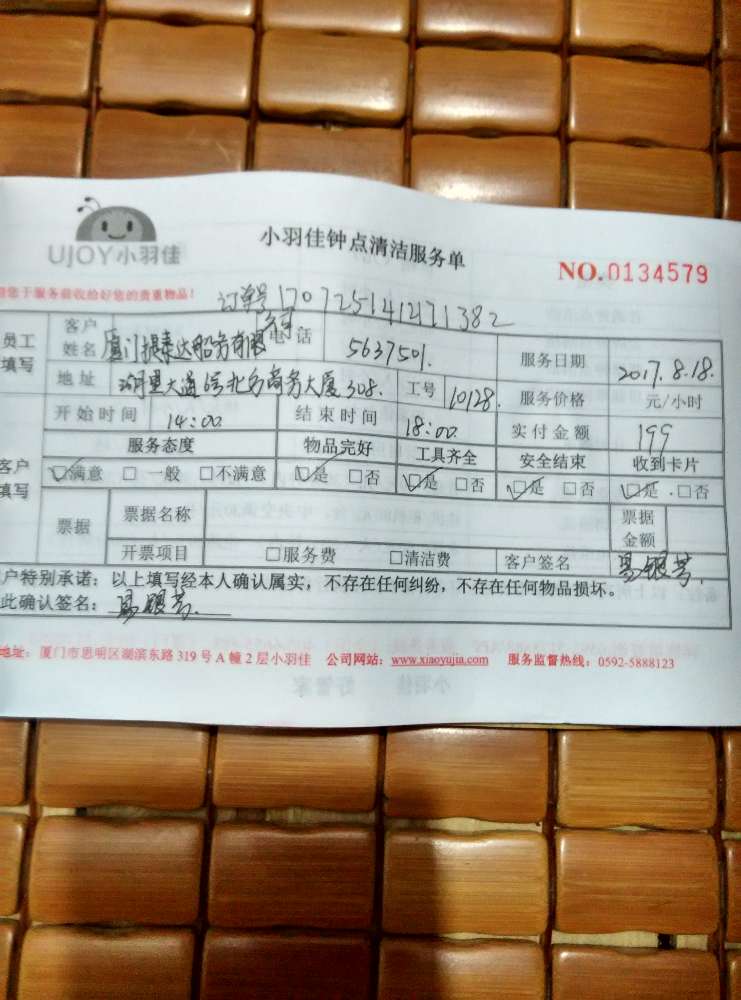 UJOY小羽佳
小羽佳钟点清洁服务单
NO.0134579
您于服务前收拾好您的贵重物品！
订单号170725141271382
员工填写
客户姓名 厦门 达船务有限 电话 5637501.
服务日期 2017.8.18.
地址 大道 号北方商务大厦308. 工号 10128.
服务价格 元/小时
开始时间 14:00 结束时间 18:00
实付金额 199
客户填写
服务态度 物品完好 工具齐全 安全结束 收到卡片
☑满意 □一般 □不满意 ☑是 □否 ☑是 □否 ☑是 □否 ☑是 □否
票据 票据名称 票据金额
开票项目 □服务费 □清洁费 客户签名 银芳.
户特别承诺：以上填写经本人确认属实，不存在任何纠纷，不存在任何物品损坏。
此确认签名： 银芳.
地址：厦门市思明区湖滨东路319号A幢2层小羽佳 公司网站：www.xiaoyujia.com 服务监督热线：0592-5888123